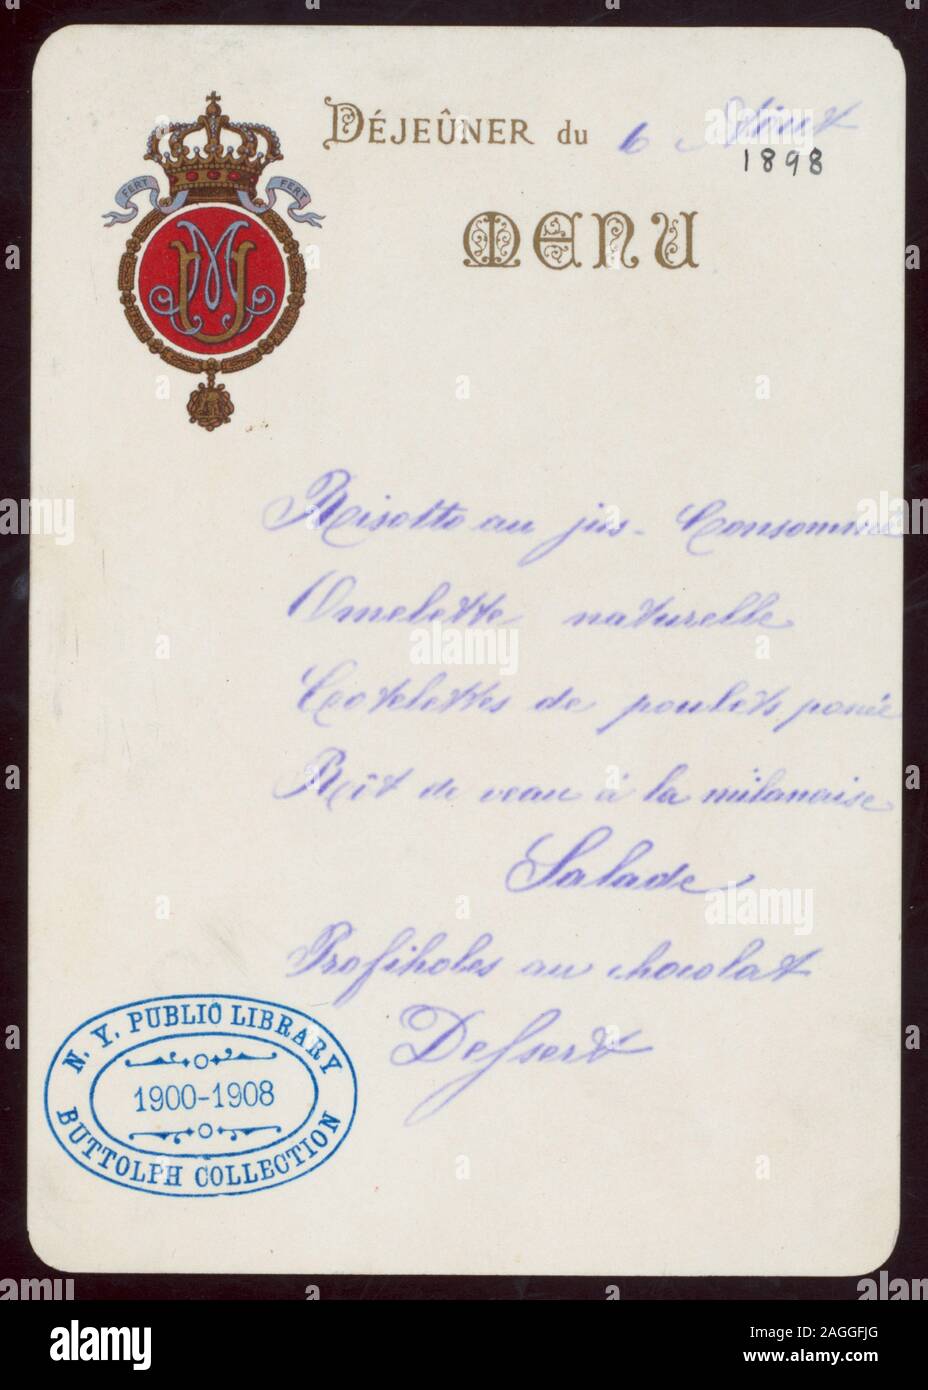 DÉJEÛNER du 6 Août
1898
MENU
FERT FERT
Risotto au jus - Consommé
Omelette naturelle
Cotelettes de poulets panée
Rôt de veau à la milanaise
Salade
Profiholes au chocolat
Dessert
N. Y. PUBLIC LIBRARY
1900-1908
BUTTOLPH COLLECTION
alamy
alamy
Image ID: 2AGGFJG
www.alamy.com